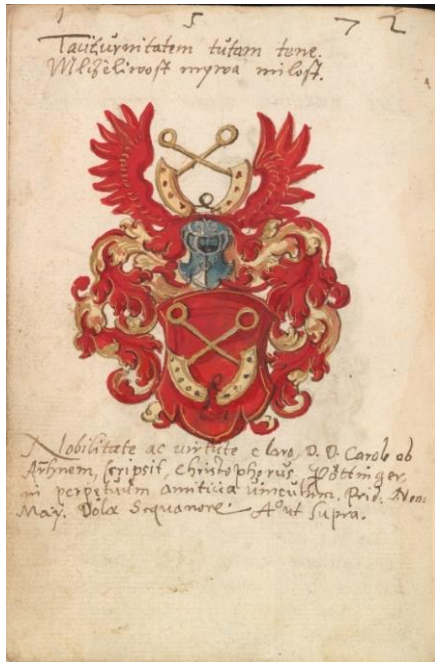 1 5 7 2
Taciturnitatem tutam tene.
Mlčzeliwost mywa milost.
Nobilitate ac virtute claro, D. D. Carolo ab
Arhnem, scripsit, Christophorus Pöttinger,
in perpetuum amiticia vinculum. Prid. Non:
May. Dolæ Sequanorũ. Aº ut supra.